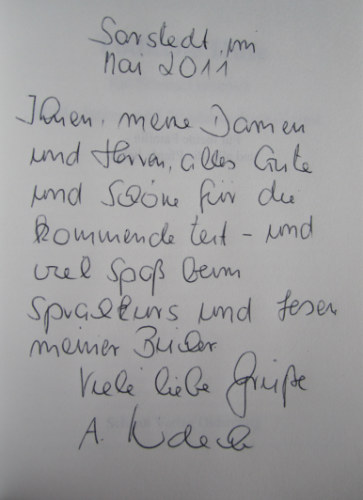 Sarstedt, im
Mai 2011
Ihnen, meine Damen
und Herren, alles Gute
und Schöne für die
kommende Zeit - und
viel Spaß beim
Sprachkurs und Lesen
meiner Bücher
Viele liebe Grüße
A.